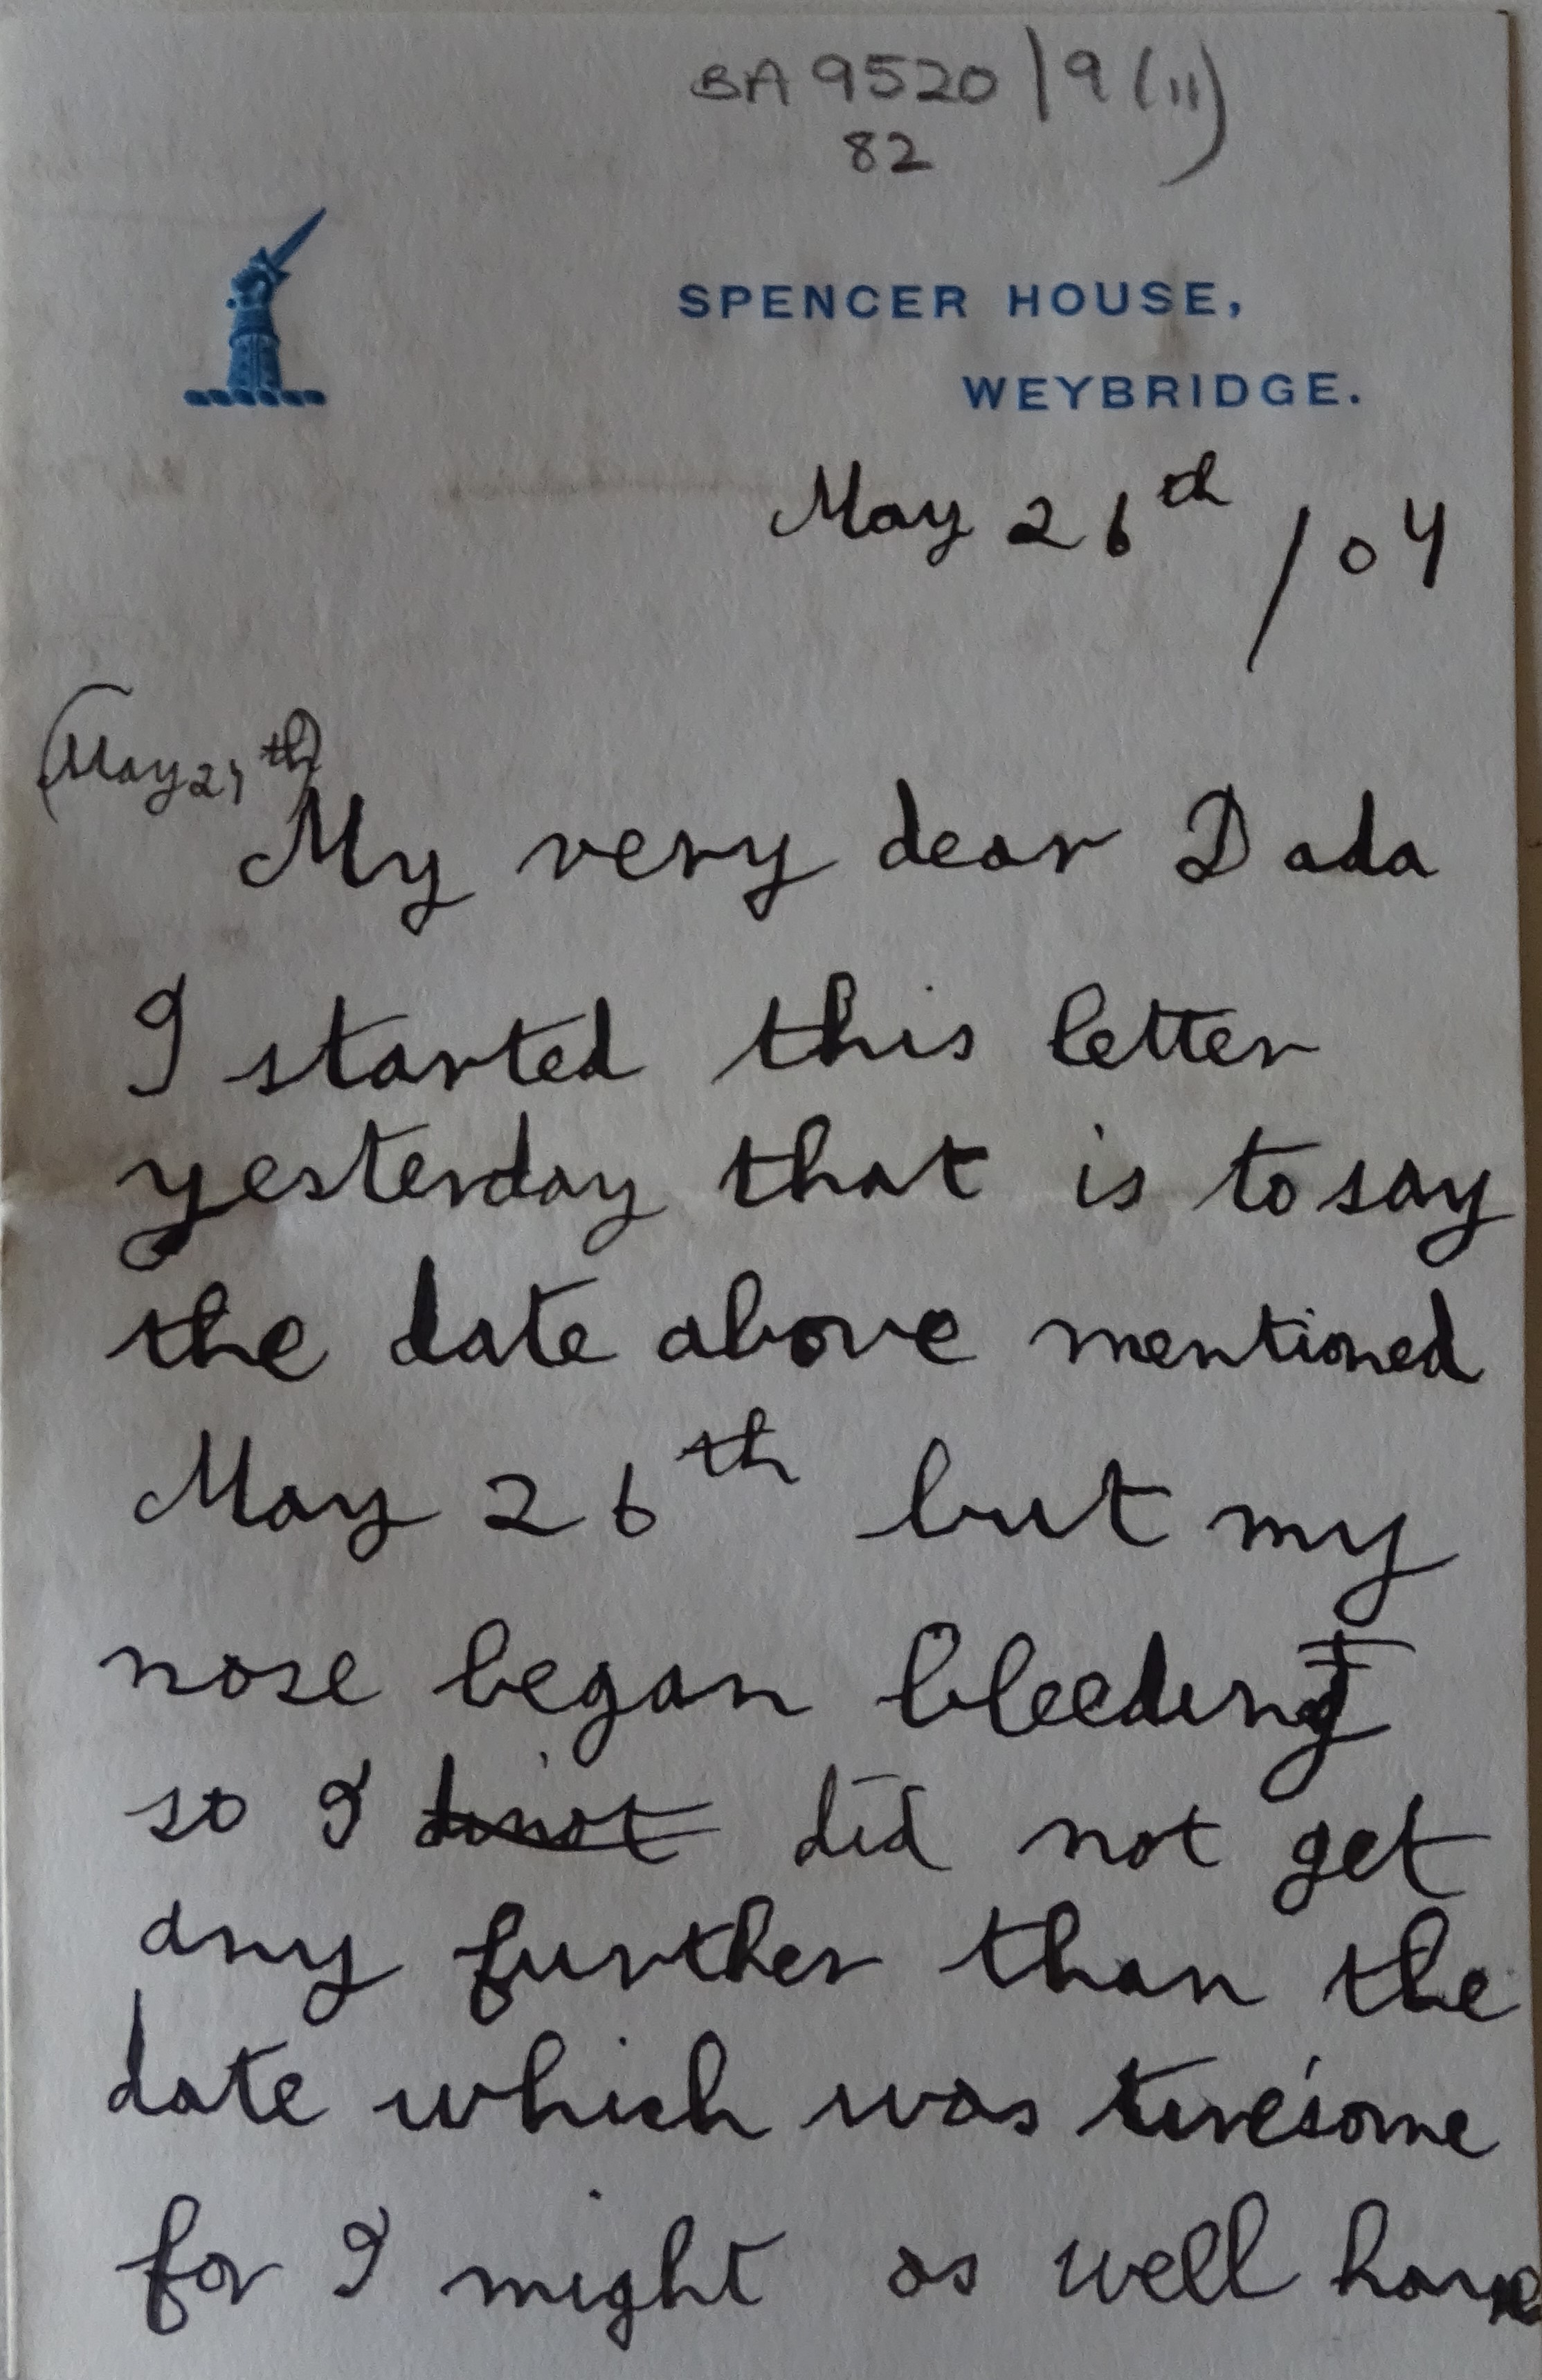 BA 9520/9(11)
82
SPENCER HOUSE,
WEYBRIDGE.
May 26th /04
(May 27th)
My very dear Dada
I started this letter
yesterday that is to say
the date above mentioned
May 26th but my
nose began bleeding
so I did not get
any further than the
date which was tiresome
for I might as well have